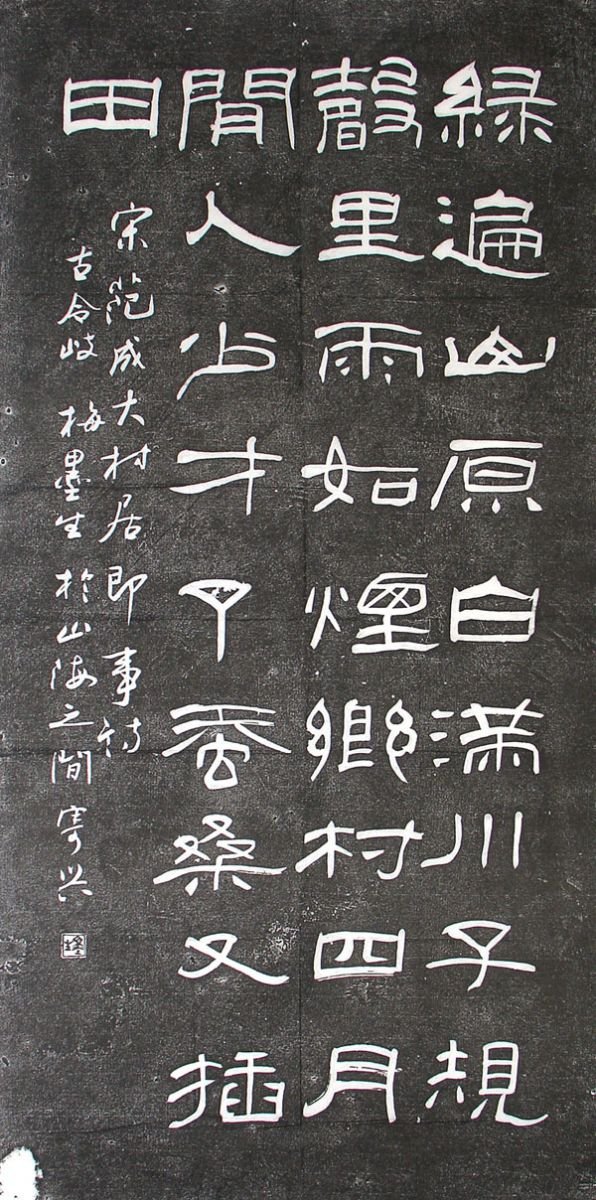 緑遍山原白滿川子規
聲里雨如煙鄉村四月
間人少才了蚕桑又插
田
宋范成大村居即事诗
古令岐 梅墨生 於山海之間 寄兴